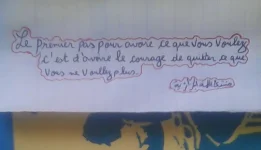 Le premier pas pour avoire ce que vous voulez
c'est d'avoire le courage de quiter ce que
vous ne voullez plus.